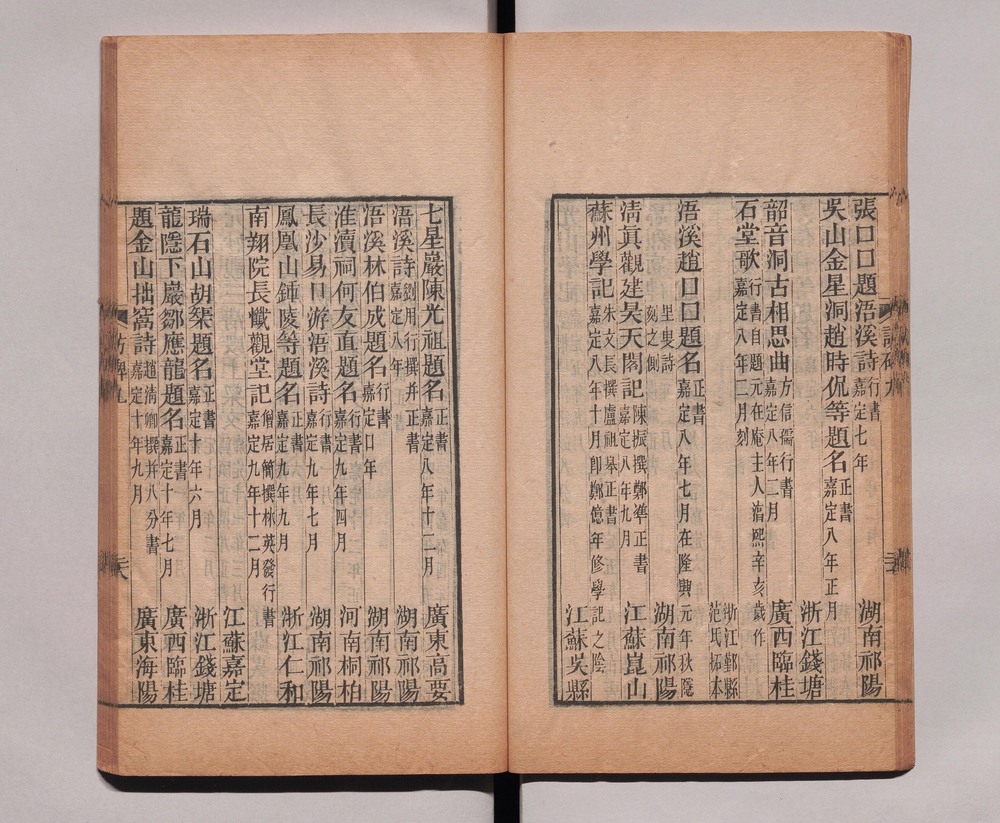 張口口題浯溪詩行書嘉定七年 湖南祁陽
吳山金星洞趙時侃等題名正書嘉定八年正月 浙江錢塘
韶音洞古相思曲方信孺行書嘉定八年二月 廣西臨桂
石堂歌行書自題元在庵主人淯熙辛亥歲作嘉定八年二月刻 浙江鄞縣范氏拓本
浯溪趙口口題名正書嘉定八年七月在隆興元年秋隱里叟詩刻之側 湖南祁陽
淸眞觀建昊天閣記陳振撰鄭準正書嘉定八年九月 江蘇崑山
蘇州學記朱文長撰盧祖皋正書嘉定八年十月卽鄭億年修學記之陰 江蘇吳縣
七星巖陳光祖題名正書嘉定八年十二月 廣東高要
浯溪詩劉用行撰并正書嘉定八年 湖南祁陽
浯溪林伯成題名行書嘉定口年 湖南祁陽
淮瀆祠何友直題名行書嘉定九年四月 河南桐柏
長沙易口游浯溪詩行書嘉定九年七月 湖南祁陽
鳳凰山鍾陵等題名正書嘉定九年九月 浙江仁和
南翔院長懺觀堂記僧居簡撰林英發行書嘉定九年十二月 江蘇嘉定
瑞石山胡榘題名正書嘉定十年六月 浙江錢塘
龍隱下巖鄒應龍題名正書嘉定十年七月 廣西臨桂
題金山拙窩詩趙淸卿撰并八分書嘉定十年九月 廣東海陽